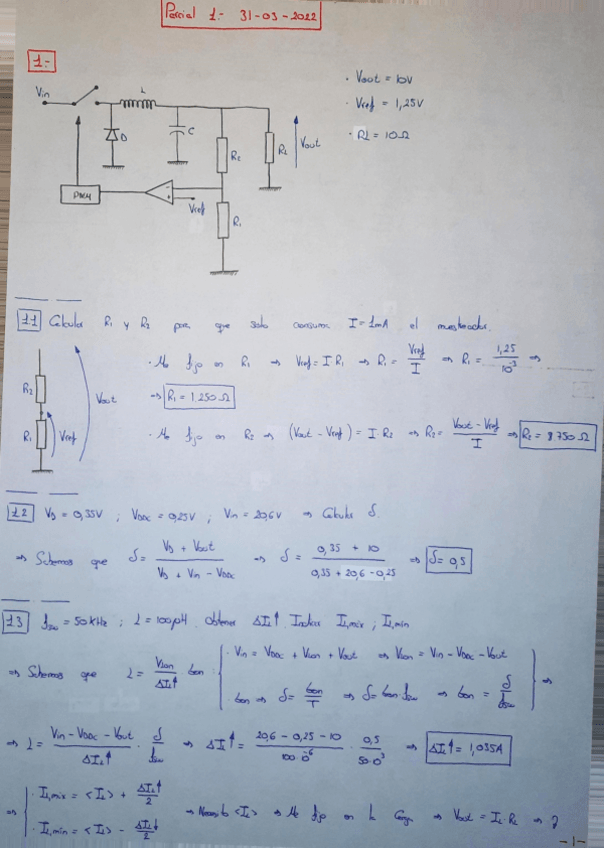 Parcial 1:- 31-03-2022
1:-
Vin
L
D
C
R2
RL
Vout
PWM
Vref
R1
· Vout = 10V
· Vref = 1,25V
· RL = 10Ω
1.1 Calcular R1 y R2 para que solo consuma I = 1mA el muestreador.
R2
R1
Vref
Vout
· Me fijo en R1 ⇒ Vref = I R1 ⇒ R1 = Vref / I ⇒ R1 = 1,25 / 10⁻³ ⇒
⇒ R1 = 1250 Ω
· Me fijo en R2 ⇒ (Vout - Vref) = I R2 ⇒ R2 = Vout - Vref / I ⇒ R2 = 8750 Ω
1.2 VD = 0,35V ; VDDC = 0,25V ; Vin = 20,6V ⇒ Calcular δ.
⇒ Sabemos que δ = VD + Vout / VD + Vin - VDDC ⇒ δ = 0,35 + 10 / 0,35 + 20,6 - 0,25 ⇒ δ = 0,5
1.3 fsw = 50 kHz ; L = 100μH. Obtener ΔIL↑ Indicar IL,máx ; IL,min
⇒ Sabemos que L = VLon / ΔIL↑ ton
· Vin = VDDC + VLon + Vout ⇒ VLon = Vin - VDDC - Vout
ton ⇒ δ = ton / T ⇒ δ = ton fsw ⇒ ton = δ / fsw ⇒
⇒ L = Vin - VDDC - Vout / ΔIL↑ · δ / fsw ⇒ ΔIL↑ = 20,6 - 0,25 - 10 / 100·10⁻⁶ · 0,5 / 50·10³ ⇒ ΔIL↑ = 1,035A
⇒ · IL,máx = <IL> + ΔIL↑ / 2
· IL,min = <IL> - ΔIL↓ / 2
⇒ Necesito <IL> ⇒ Me fijo en la Carga ⇒ Vout = IL·RL ⇒
-1-